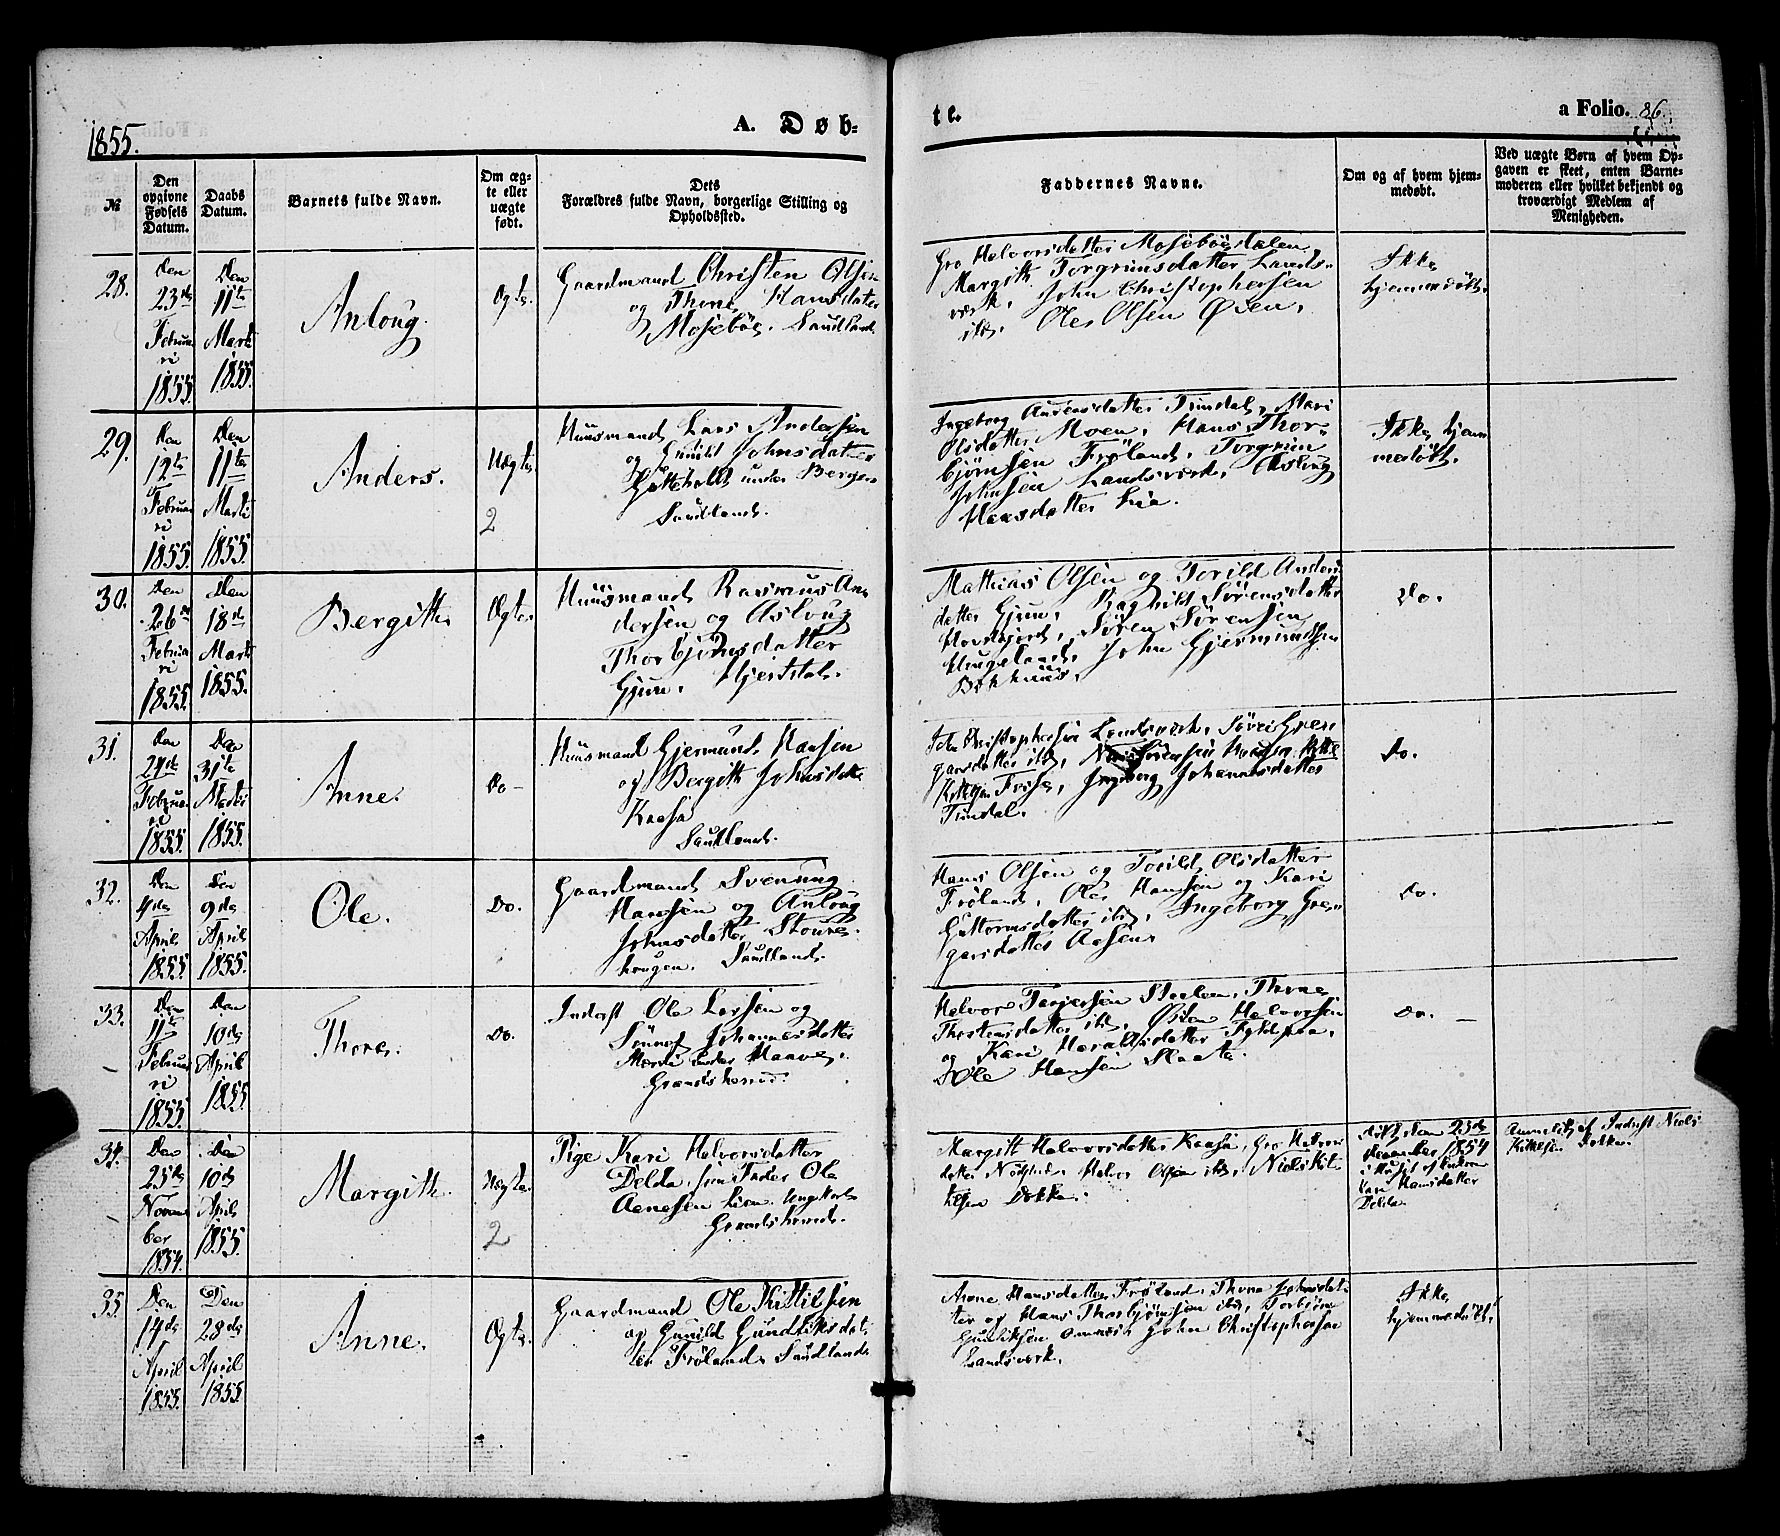 1855.
A. Døb-
te.
a Folio. 86.
№
Den opgivne Fødsels Datum.
Daabs Datum.
Barnets fulde Navn.
Om ægte eller uægte født.
Dets Forældres fulde Navn, borgerlige Stilling og Opholdssted.
Faddernes Navne.
Om og af hvem hjemmedøbt.
Ved uægte Børn af hvem Opgaven er skeet, enten Barnemoderen eller hvilket bekjendt og troværdigt Medlem af Menigheden.
28.
den 23de Februari 1855
Den 11te Marti 1855.
Anloug.
Ægte.
Gaardmand Christen Olsen
og Thone Hansdatter
Mosebøe. Saudland.
Gro Halvorsdatter Mosebøedalen,
Margith Torgrimsdatter Lands-
verk, John Christophersen
ibd, Ole Olsen Øsen.
Ikke
hjemmedøbt.
29.
den 12te Februari 1855.
Den 11te Marti 1855.
Anders.
Uægte.
2
Huusmand Lars Andersen
og Gunild Johnsdatter
under Bergen
Saudland.
Ingeborg Tindal, Mari
Olsdatter Moen, Hans Thor-
bjørnsen Frøland, Torgrim
Johnsen Landsverk, Aslaug
Hansdatter Lia.
Ikke hjem
medøbt.
30.
Den 26de Februari 1855
Den 18de Marti 1855.
Bergith
Ægte.
Huusmand Rasmus An-
dersen og Asloug
Thorbjørnsdatter
Gjuve. Hjertdal.
Mathias Olsen og Torild Anders
datter Gjuve, Ragnild Sørensdatter
Søren Sørensen
Haugeland, John Gjermundsen
Bekhuus.
Do.
31.
den 24de Februari 1855.
Den 31te Marti 1855.
Anne.
Do-
Huusmand Gjermund Hansen
og Bergith Johnsdatter
Kaasa
Saudland.
John Christophersen Landsverk,
garsdatter ibd,
Ingeborg Johannesdatter
Tindal.
Do.
32.
den 4de April 1855
den 9de April 1855.
Ole.
Do.
Gaardmand Svenung
Hansen og Anloug
Johnsdatter Stoure-
haugen. Saudland.
Hans Olsen og Torild Olsdatter
Frøland, Ole Hansen og Kari
Guttormsdatter ibd, Ingeborg Gre-
garsdatter Aasen.
Do.
33.
Den 11te Februari 1855
Den 10de April 1855.
Thore.
Do.
Inderst Ole Larsen og
Sønnof Johannesdatter
under Haave.
Grandsherred.
Halvor Tarjersen Thone
Thostensdatter ibd, Østen Halvorsen
og Kari Haraldsdatter
Ole Hansen Slaata.
Do.
34.
Den 25de November 1854.
Den 10de April 1855
Margith.
Uægte.
2
Pige Kari Halvorsdatter
Delda, som Fader Ole
Aanesen Lien Ungkarl
Grandsherred.
Margith Halvorsdatter Kaasa, Gro Halvors
datter Halvor Olsen ibd, Niels Kit-
telsen Dokka.
Døbt den 23de
December 1854
i Huset af Enken
Kari Hansdatter
Delda.
Anmeldt af Inderst Niels
Kittelsen Dokka.
35.
Den 14de April 1855.
Den 28de April 1855.
Anne.
Ægte.
Gaardmand Ole Kittilsen
og Gunild Gundliksdat-
ter Frøland. Saudland.
Anne Hansdatter Frøland, Thone Johnsdat-
ter og Hans Thorbjørnsen ibd, Torbjørn
Gunliksen John Christophersen
Landsverk.
Ikke
hjemmedøbt.